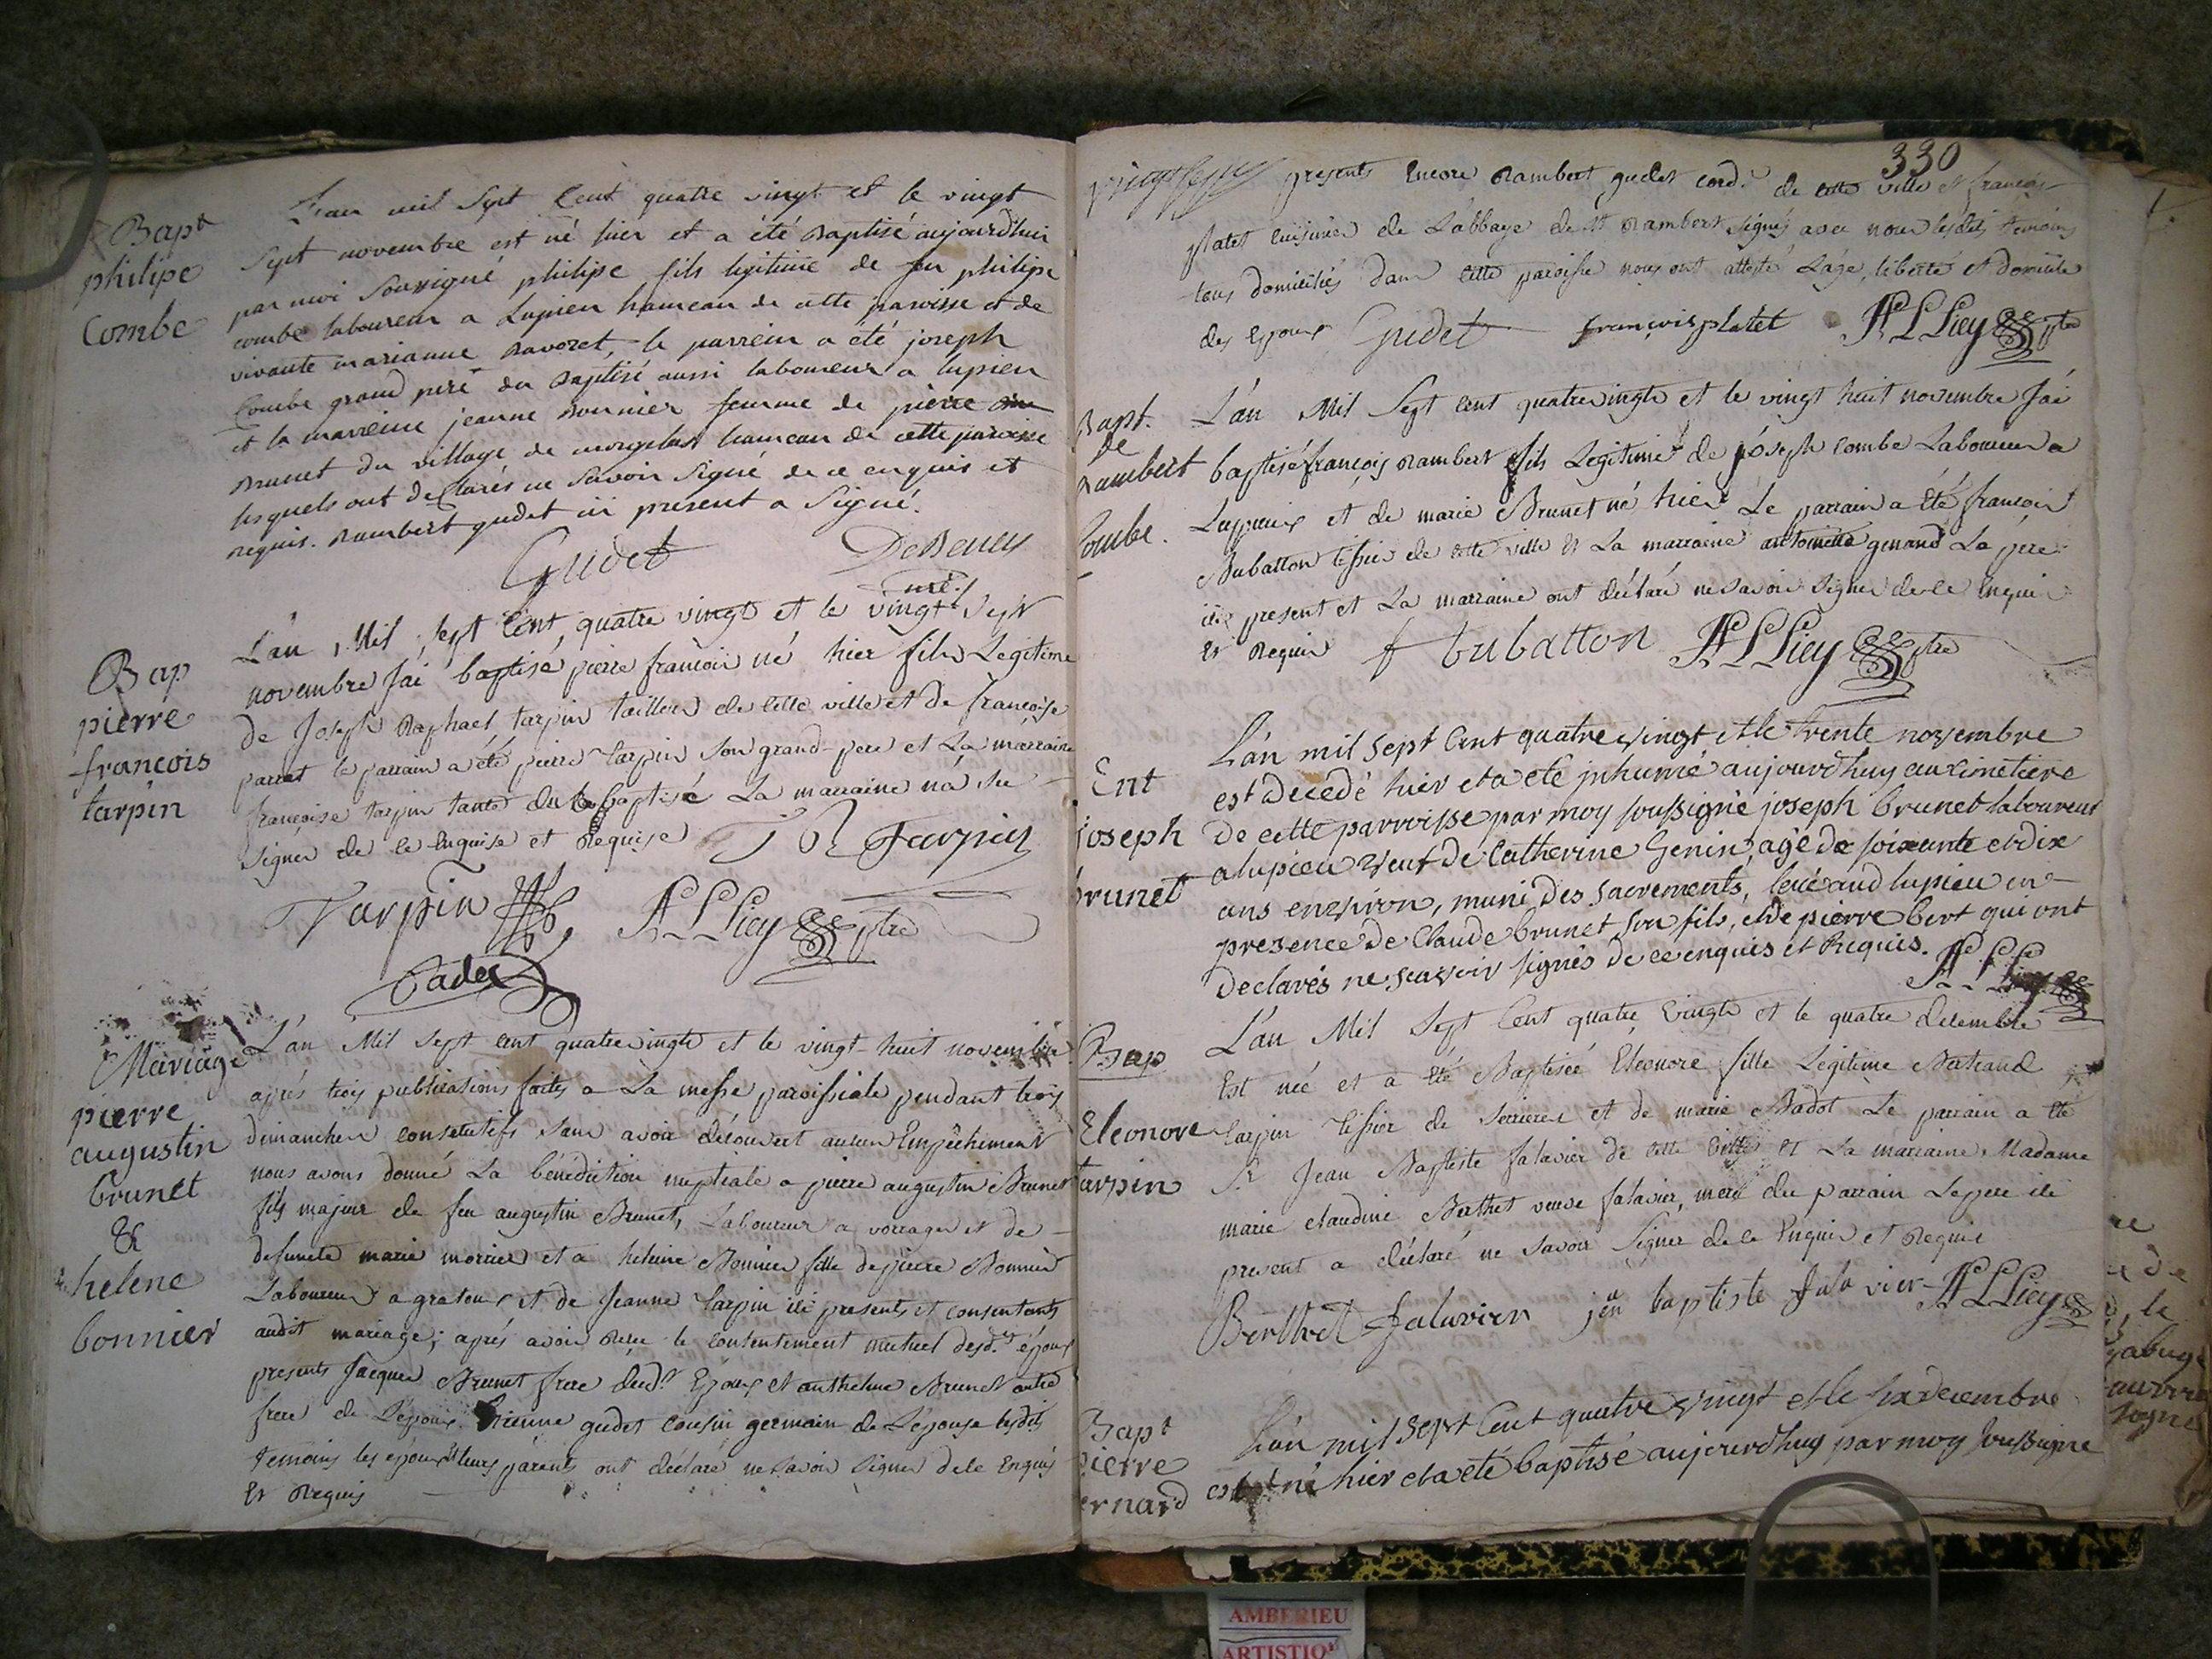 Bapt
philipe
Combe
L'an mil Sept Cent quatre vingt et le vingt
Sept novembre est né hier et a été Baptisé aujourd'hui
par moi Soussigné philipe fils legitime de feu philipe
combe laboureur a Lupieu hameau de cette paroisse et de
vivante marianne Ravoret, le parrein a été joseph
Combe grand pere du Baptisé aussi laboureur a lupieu
et la marreine jeanne Bonnier femme de pierre
Brunet du village de hameau de cette paroisse
lesquels ont declarés ne Savoir Signé de ce enquis et
requis. Rambert gudet ici present a Signé.
Gudet
DeBeney
Bap
pierre
francois
tarpin
L'an Mil Sept Cent quatre vingt et le vingt Sept
novembre J'ai baptisé pierre francois né hier fils Legitime
de Joseph Raphael tarpin tailleur de cette ville et de françoise
parrat le parrain a été pierre tarpin Son grand-pere et La marraine
françoise tarpin tante du baptisé La marraine n'a Su
Signer de ce Enquise et Requise J R Tarpin
Tarpin
Cadet
Mariage
pierre
augustin
brunet
&
helene
bonnier
L'an Mil Sept cent quatrevingt et le vingt-huit novembre
aprés trois publications faites a La messe paroissiale pendant trois
dimanches consecutifs Sans avoir découvert aucun Empêchement
nous avons donné La bénédiction nuptiale a pierre augustin Brunet
fils majeur de feu augustin Brunet, Laboureur a vorages et de
defunete marie mornier et a helene Bonnier fille de pierre Bonnier
Laboureur a gratoux et de Jeanne tarpin ici presents et consentants
audit mariage; aprés avoir Reçu le consentement mutuel desd.ts époux
presents Jacques Brunet frere dud.t Epoux et anthelme Brunet autre
frere de L'epoux Etienne gudet cousin germain de L'epouse lesdits
temoins les epoux et leurs parents ont déclaré ne Savoir Signer de ce Enquis
Et Requis
330
presents Encore Rambert gudet cord.r de cette ville et françois
platet cuisinier de L'abbaye de St Rambert Signés avec nous lesdits temoins
tous domiciliés dans cette paroisse nous ont attesté L'age, liberté et domicile
des Epoux Gudet françois platet
Bapt.
de
Rambert
Combe.
L'an Mil Sept cent quatrevingt et le vingt huit novembre J'ai
baptisé françois Rambert fils Legitime de joseph combe Laboureur a
Lupieux et de marie Brunet né hier Le parrain a été françois
Bubatton tissier de cette ville et La marraine antoinette genand Le pere
ici present et La marraine ont déclaré ne Savoir Signer de ce Enquis
Et Requis f bubatton
Ent
joseph
brunet
L'an mil Sept Cent quatre vingt et le trente novembre
est decedé hier et a eté inhumé aujourdhuy au cimetiere
de cette parroisse par moy soussigné joseph brunet laboureur
a lupieu veuf de Catherine Genin, agé de soixante et dix
ans environ, muni des sacrements, levé aud lupieu en
presence de Claude brunet son fils, et de pierre bert qui ont
declarés ne scavoir signés de ce enquis et Requis.
Bap
Eleonore
tarpin
L'an Mil Sept Cent quatre Vingt et le quatre decembre
Est née et a été Baptisée Eleonore fille Légitime Bertrand
tarpin tissier de Serrieres et de marie Badot Le parrain a été
Sr Jean Baptiste falavier de cette ville et La marraine Madame
marie claudine Berthet veuve falavier, mere du parrain Le pere ici
present a déclaré ne Savoir Signer de ce Enquis et Requis
Berthet falavier jean baptiste falavier
Bapt
pierre
bernard
L'an mil Sept Cent quatre vingt et le six decembre
est né hier et a eté baptisé aujourdhuy par moy soussigné
AMBERIEU
ARTISTIQ